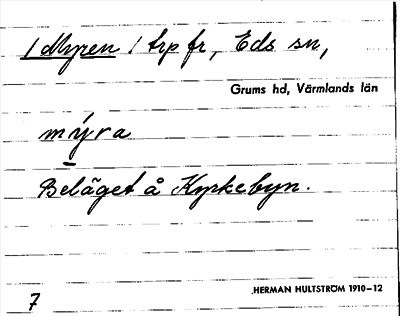 /Myren/ trp fr, Eds sn,
Grums hd, Värmlands län
mýra
Beläget å Kyrkebyn.
HERMAN HULTSTRÖM 1910–12
7